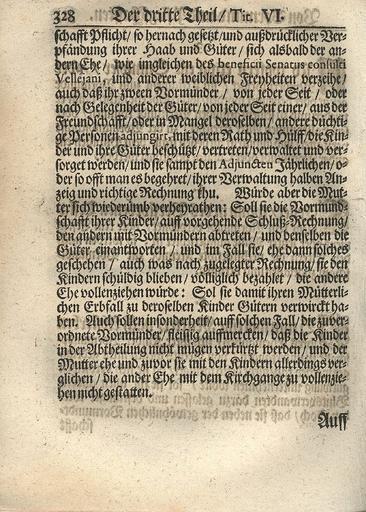 328 Der dritte Theil / Tit. VI.
schafft Pflicht / so hernach gesetzt / und außdrücklicher Ver-
pfändung ihrer Haab und Güter / sich alsbald der an-
dern Ehe / wie ingleichen des beneficii Senatus consulti
Vellejani, und anderer weiblichen Freyheiten verzeihe /
auch daß ihr zween Vormünder / von jeder Seit / oder
nach Gelegenheit der Güter / von jeder Seit einer / aus der
Freundschafft / oder in Mangel deroselben / andere düchti-
ge Personen adjungirt, mit deren Rath und Hülff / die Kin-
der und ihre Güter beschützt / vertreten / verwaltet und ver-
sorget werden / und sie sampt den Adjuncten Jährlichen / o-
der so offt man es begehret / ihrer Verwaltung halben An-
zeig und richtige Rechnung thu. Würde aber die Mut-
ter sich wiederumb verheyrathen: Soll sie die Vormund-
schafft ihrer Kinder / auff vorgehende Schluß-Rechnung /
den andern mit Vormündern abtreten / und denselben die
Güter einantworten / und im Fall sie / ehe dann solches
geschehen / auch was nach zugelegter Rechnung / sie den
Kindern schüldig blieben / völliglich bezahlet / die andere
Ehe vollenziehen würde: Sol sie damit ihren Mütterli-
chen Erbfall zu deroselben Kinder Gütern verwirckt ha-
ben. Auch sollen insonderheit / auff solchen Fall / die zuver-
ordnete Vormünder / fleissig auffmercken / daß die Kinder
in der Abtheilung nicht mügen verkürtzt werden / und der
Mutter ehe und zuvor sie mit den Kindern allerdings ver-
glichen / die ander Ehe mit dem Kirchgange zu vollenzie-
hen nicht gestatten.
Auff